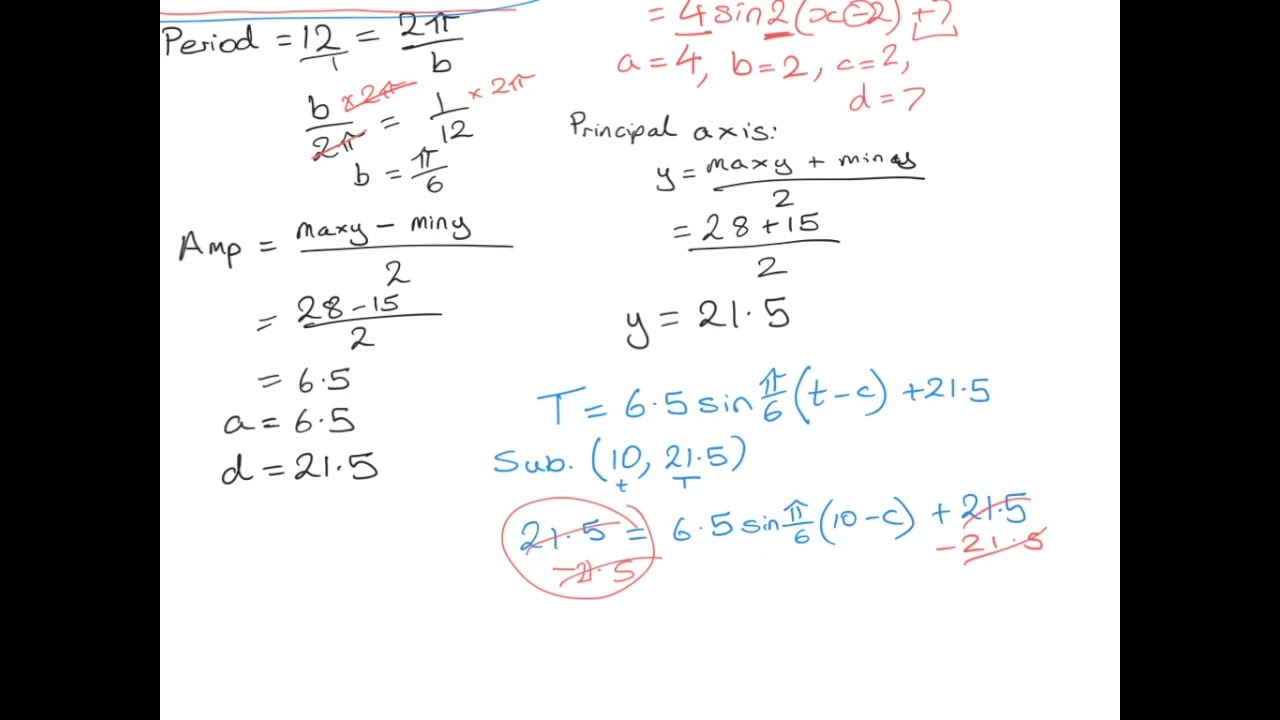 Period = 12/1 = 2π/b
b × 2π / 2π = 1/12 × 2π
b = π/6
Amp = maxy − miny / 2
= 28 − 15 / 2
= 6.5
a = 6.5
d = 21.5
= 4 sin 2(x − 2) + 7
a = 4, b = 2, c = 2,
d = 7
Principal axis:
y = maxy + miny / 2
= 28 + 15 / 2
y = 21.5
T = 6.5 sin π/6 (t − c) + 21.5
Sub. (10, 21.5)
t T
21.5 = 6.5 sin π/6 (10 − c) + 21.5
−21.5 −21.5